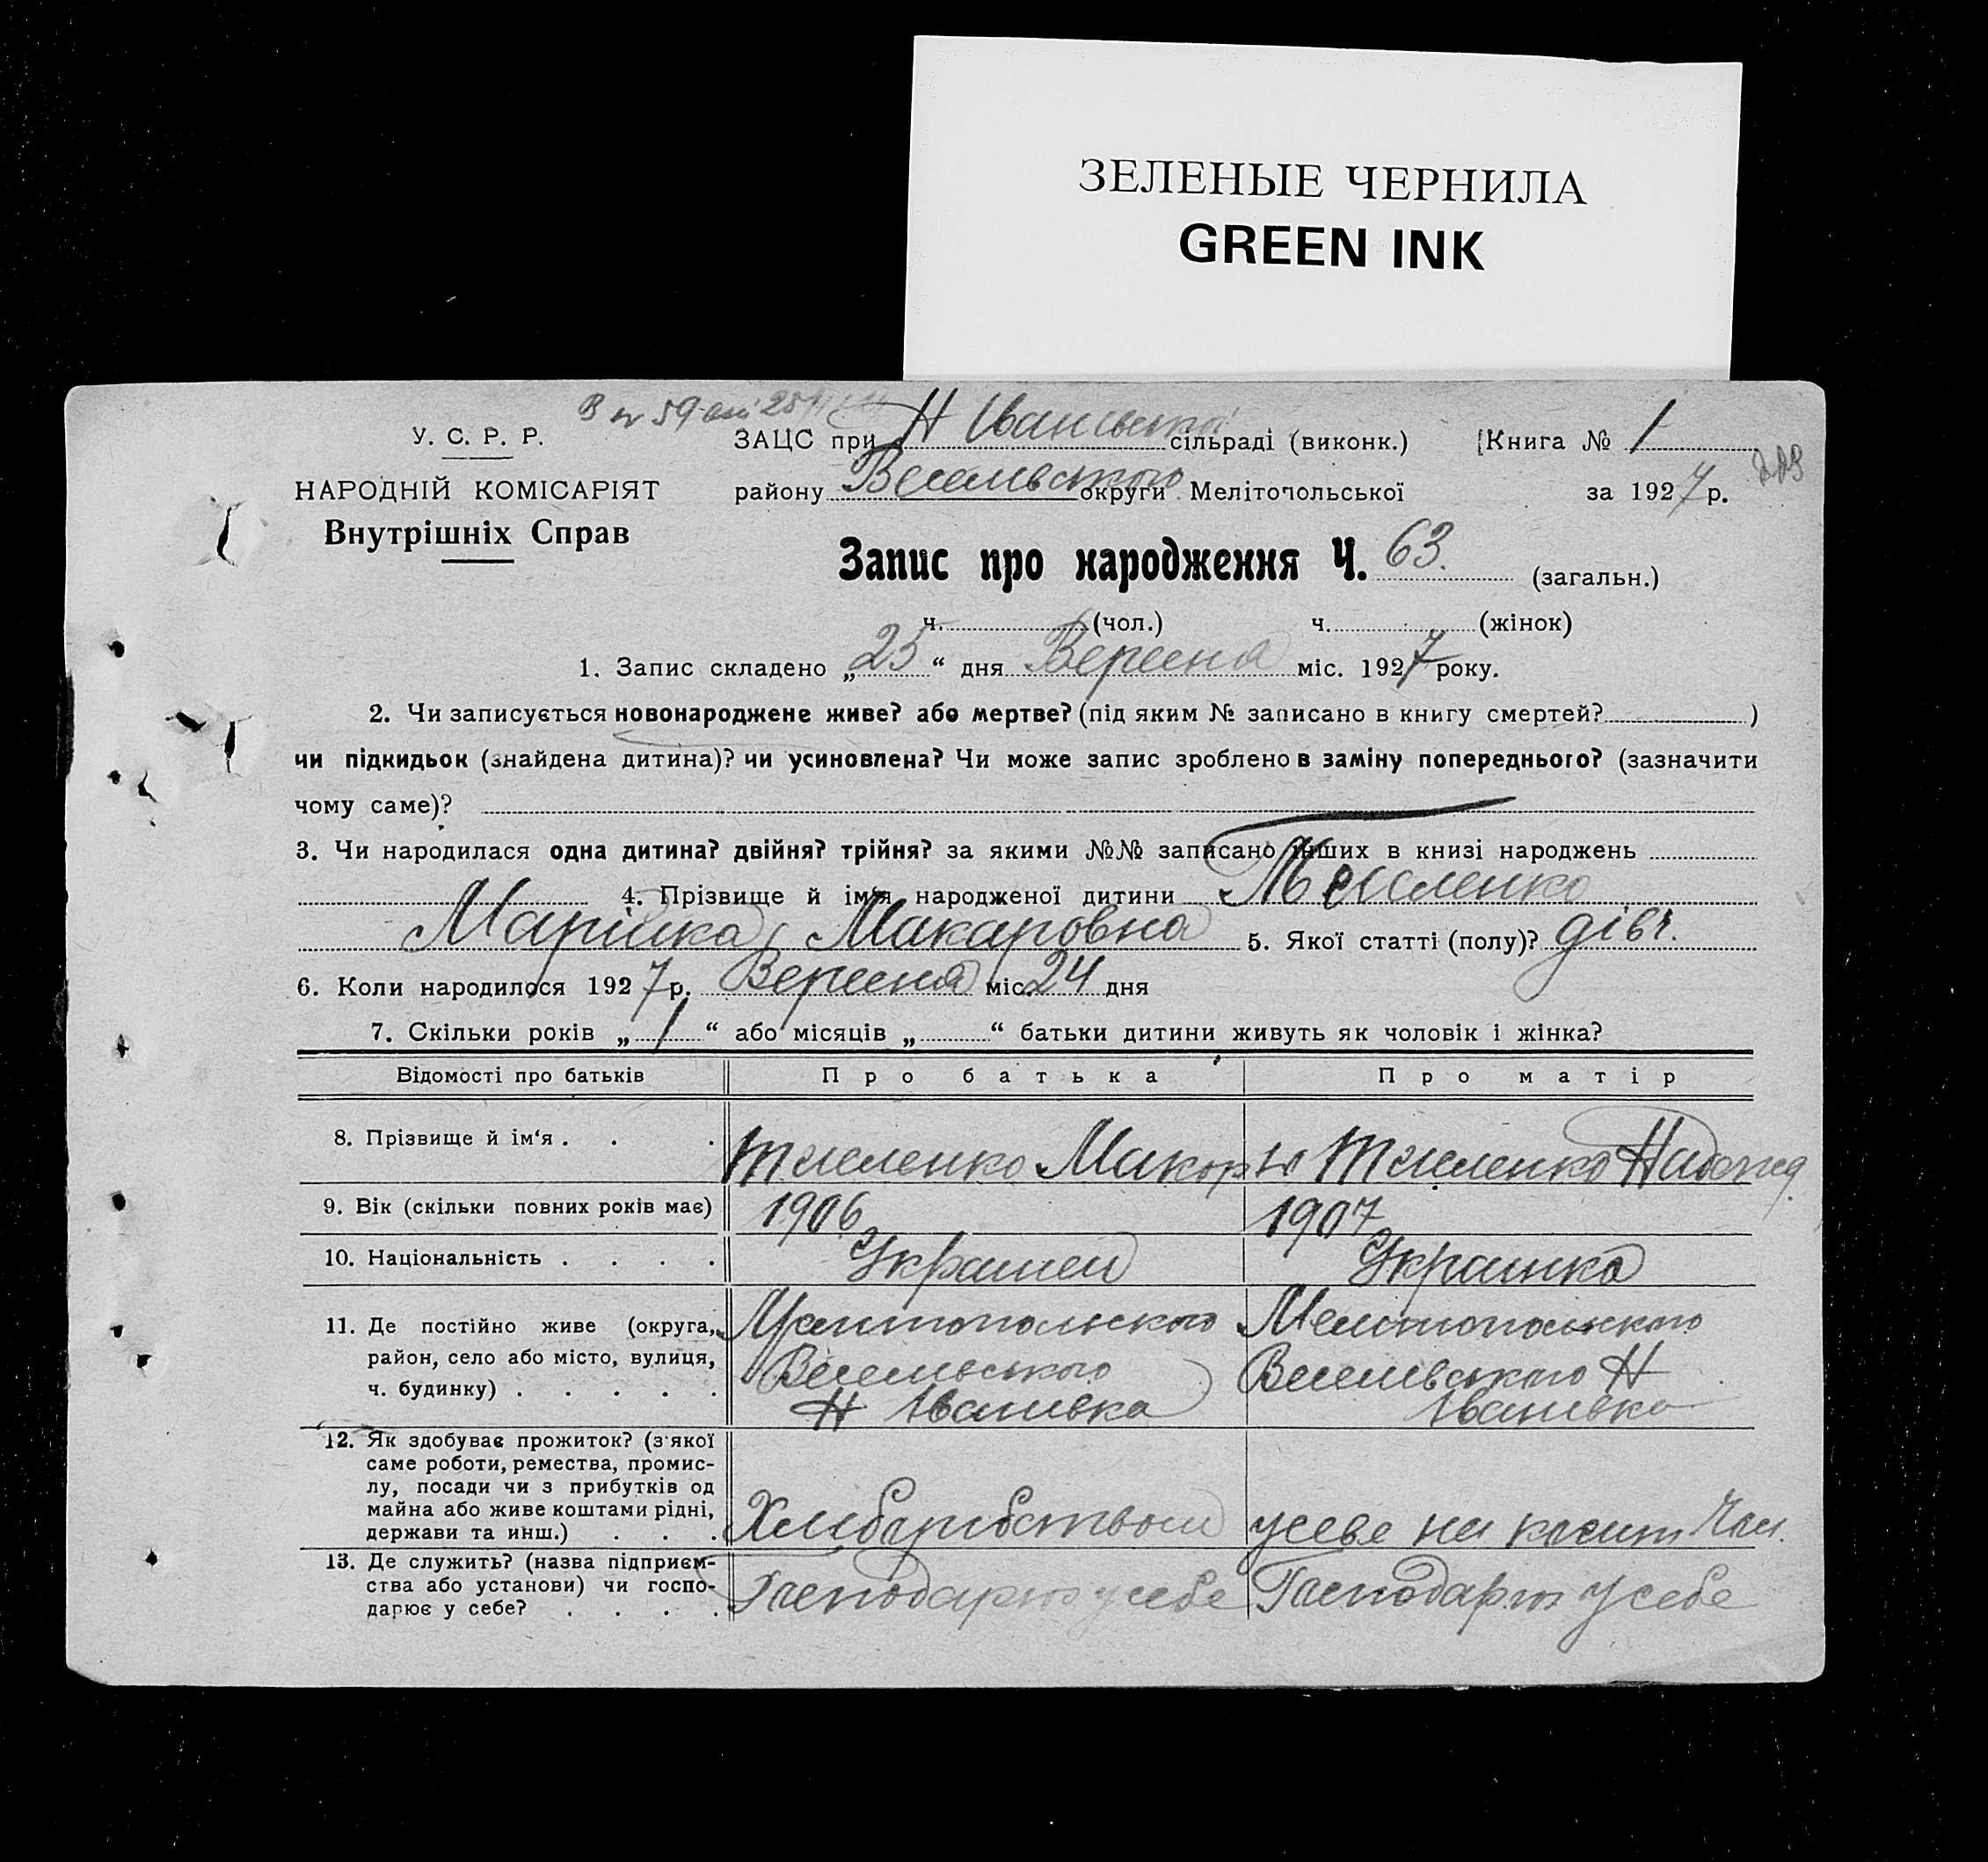 ЗЕЛЕНЫЕ ЧЕРНИЛА
GREEN INK
У. С. Р. Р.
НАРОДНІЙ КОМІСАРІЯТ
Внутрішніх Справ
ЗАЦС при Н Іванівській сільраді (виконк.) Книга № 1
району Веселівського округи Мелітопольської за 1927 р.
Запис про народження Ч. 63. (загальн.)
ч. (чол.) ч. (жінок)
1. Запис складено „25“ дня Вересня міс. 1927 року.
2. Чи записується новонароджене живе? або мертве? (під яким № записано в книгу смертей? )
чи підкидьок (знайдена дитина)? чи усиновлена? Чи може запис зроблено в заміну попереднього? (зазначити
чому саме)?
3. Чи народилася одна дитина? двійня? трійня? за якими №№ записано інших в книзі народжень
4. Прізвище й ім'я народженої дитини
Марійка Макаровна 5. Якої статті (полу)? дівч.
6. Коли народилося 1927 р. Вересня міс. 24 дня
7. Скільки років „1“ або місяців „ “ батьки дитини живуть як чоловік і жінка?
Відомості про батьків Про батька Про матір
8. Прізвище й ім'я . . . Макар
9. Вік (скільки повних років має) 1906 1907
10. Національність . . . . Украинец Украинка
11. Де постійно живе (округа, Мелитопольского Мелитопольского
район, село або місто, вулиця, Веселівського Веселівського Н
ч. будинку) . . . . . Н Іванівка Іванівка
12. Як здобуває прожиток? (з якої
саме роботи, ремества, промис-
лу, посади чи з прибутків од
майна або живе коштами рідні,
держави та инш.) . . . Хліборобством
13. Де служить? (назва підприєм-
ства або установи) чи госпо-
дарює у себе? . . . . Господарює у себе Господарює у себе